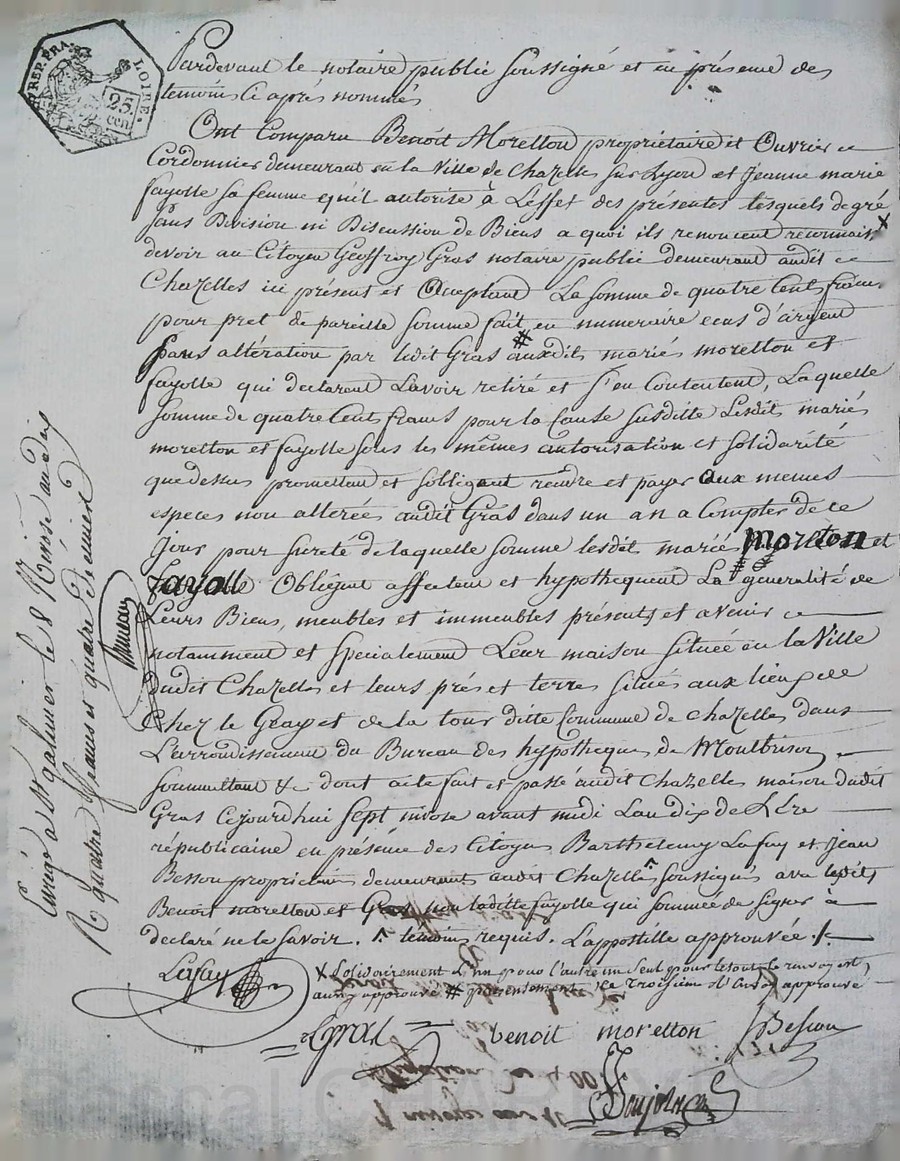 REP. FRA.
LOIRE.
25.
cen.
Pardevant le notaire public soussigné et en présence des
temoins ci après nommés
Ont Comparu Benoit Moretton propriétaire et Ouvrier
Cordonnier demeurant en la Ville de Chazelles sur Lyon et Jeanne marie
fayolle sa femme qu'il autorise à L'effet des présentes lesquels de gré
sans Division ni Discussion de Biens a quoi ils renoncent reconnaiss X
devoir au Citoyen Geoffroy Gras notaire public demeurant audit
Chazelles ici présent et Acceptant La somme de quatre Cent francs
pour pret de pareille somme fait en numeraire ecus d'argent
sans altération par ledit Gras # auxdits mariés moretton et
fayolle qui declarent Lavoir retiré et s'en Contentent, Laquelle
somme de quatre Cent francs pour la Cause susditte Lesdits mariés
moretton et fayolle sous les mêmes autorisation et solidarité
que dessus promettent et sobligent rendre et payer aux memes
especes non alterées audit Gras dans un an a Compter de ce
Jour pour sureté de laquelle somme lesdits mariés moretton et
fayolle Obligent affectent et hypothequent La généralité de
Leurs Biens, meubles et immeubles présents et avenir
notamment et specialement Leur maison située en la Ville
dudit Chazelles et leurs prés et terres situés aux lieux de
Chez le Gray et de la tour ditte Commune de Chazelles dans
L'arrondissement du Bureau des hypotheques de Montbrison
soumettant &c dont acte fait et passé audit Chazelles maison dudit
Gras Cejourdhui sept nivose avant midi Lan dix de L'Ere
républicaine en présence des Citoyens Barthelemy Lafay et Jean
Besson propriétaires demeurants audit Chazelles ^ soussignés avec lesdits
Benoit moretton et Gras non laditte fayolle qui sommée de signer à
declaré ne le savoir. ^ temoins requis. L'appostille approuvée
X solidairement L'un pour l'autre un seul pour le tout le renvoy est
aussy approuvé # présentement, le troisième approuvé
Lafay
Gras
benoit moretton
Besson
Enrégé à St galmier le 8 Nivôse an dix
R quatre francs et quatre decimes